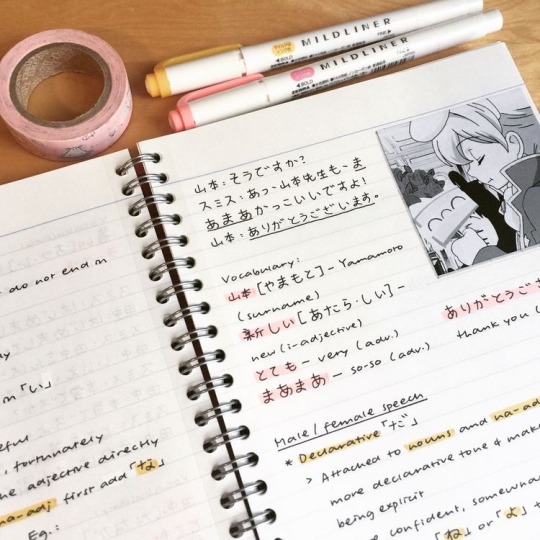 MILDLINER
BOLD
FINE
MILDLINER
BOLD
do not end in
m「い」
, fortunately
the adjective directly
na-adj first add「な」
Eg.:
山本：そうですか？
スミス：あっ、山本先生も、ま
あまあかっこいいですよ！
山本：ありがとうございます。
Vocabulary:
山本［やまもと］- Yamamoto
(surname)
新しい［あたら・しい］-
new (i-adjective)
とても - very (adv.)
まあまあ - so-so (adv.)
ありがとうご
thank you (
Male/female speech
* Declarative「だ」
> Attached to nouns and na-ad
more declarative tone & make
being explicit
confident, somewha
「ね」or「よ」t